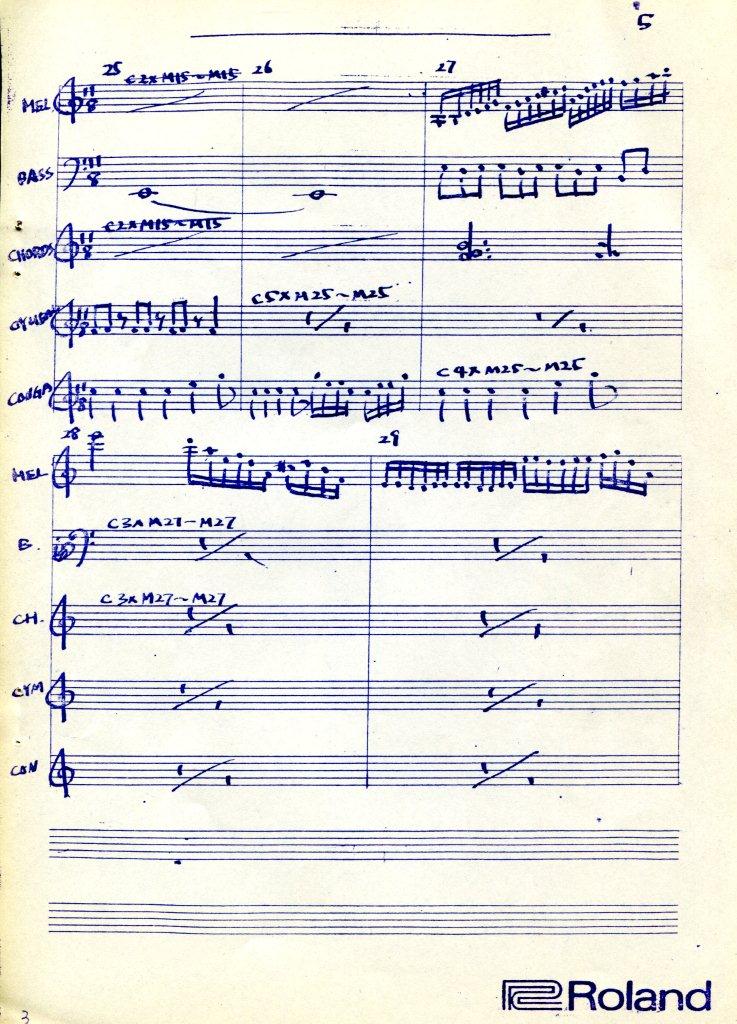 5
25 C2xM15~M15 26 27
MEL 11 8
BASS 11 8
CHORDS 11 8 C2xM15~M15
CYMBAL 11 8 C5xM25~M25
CONGA 11 8 C4xM25~M25
28 29
MEL
B. C3xM27~M27
CH. C3xM27~M27
CYM
CON
Roland
3